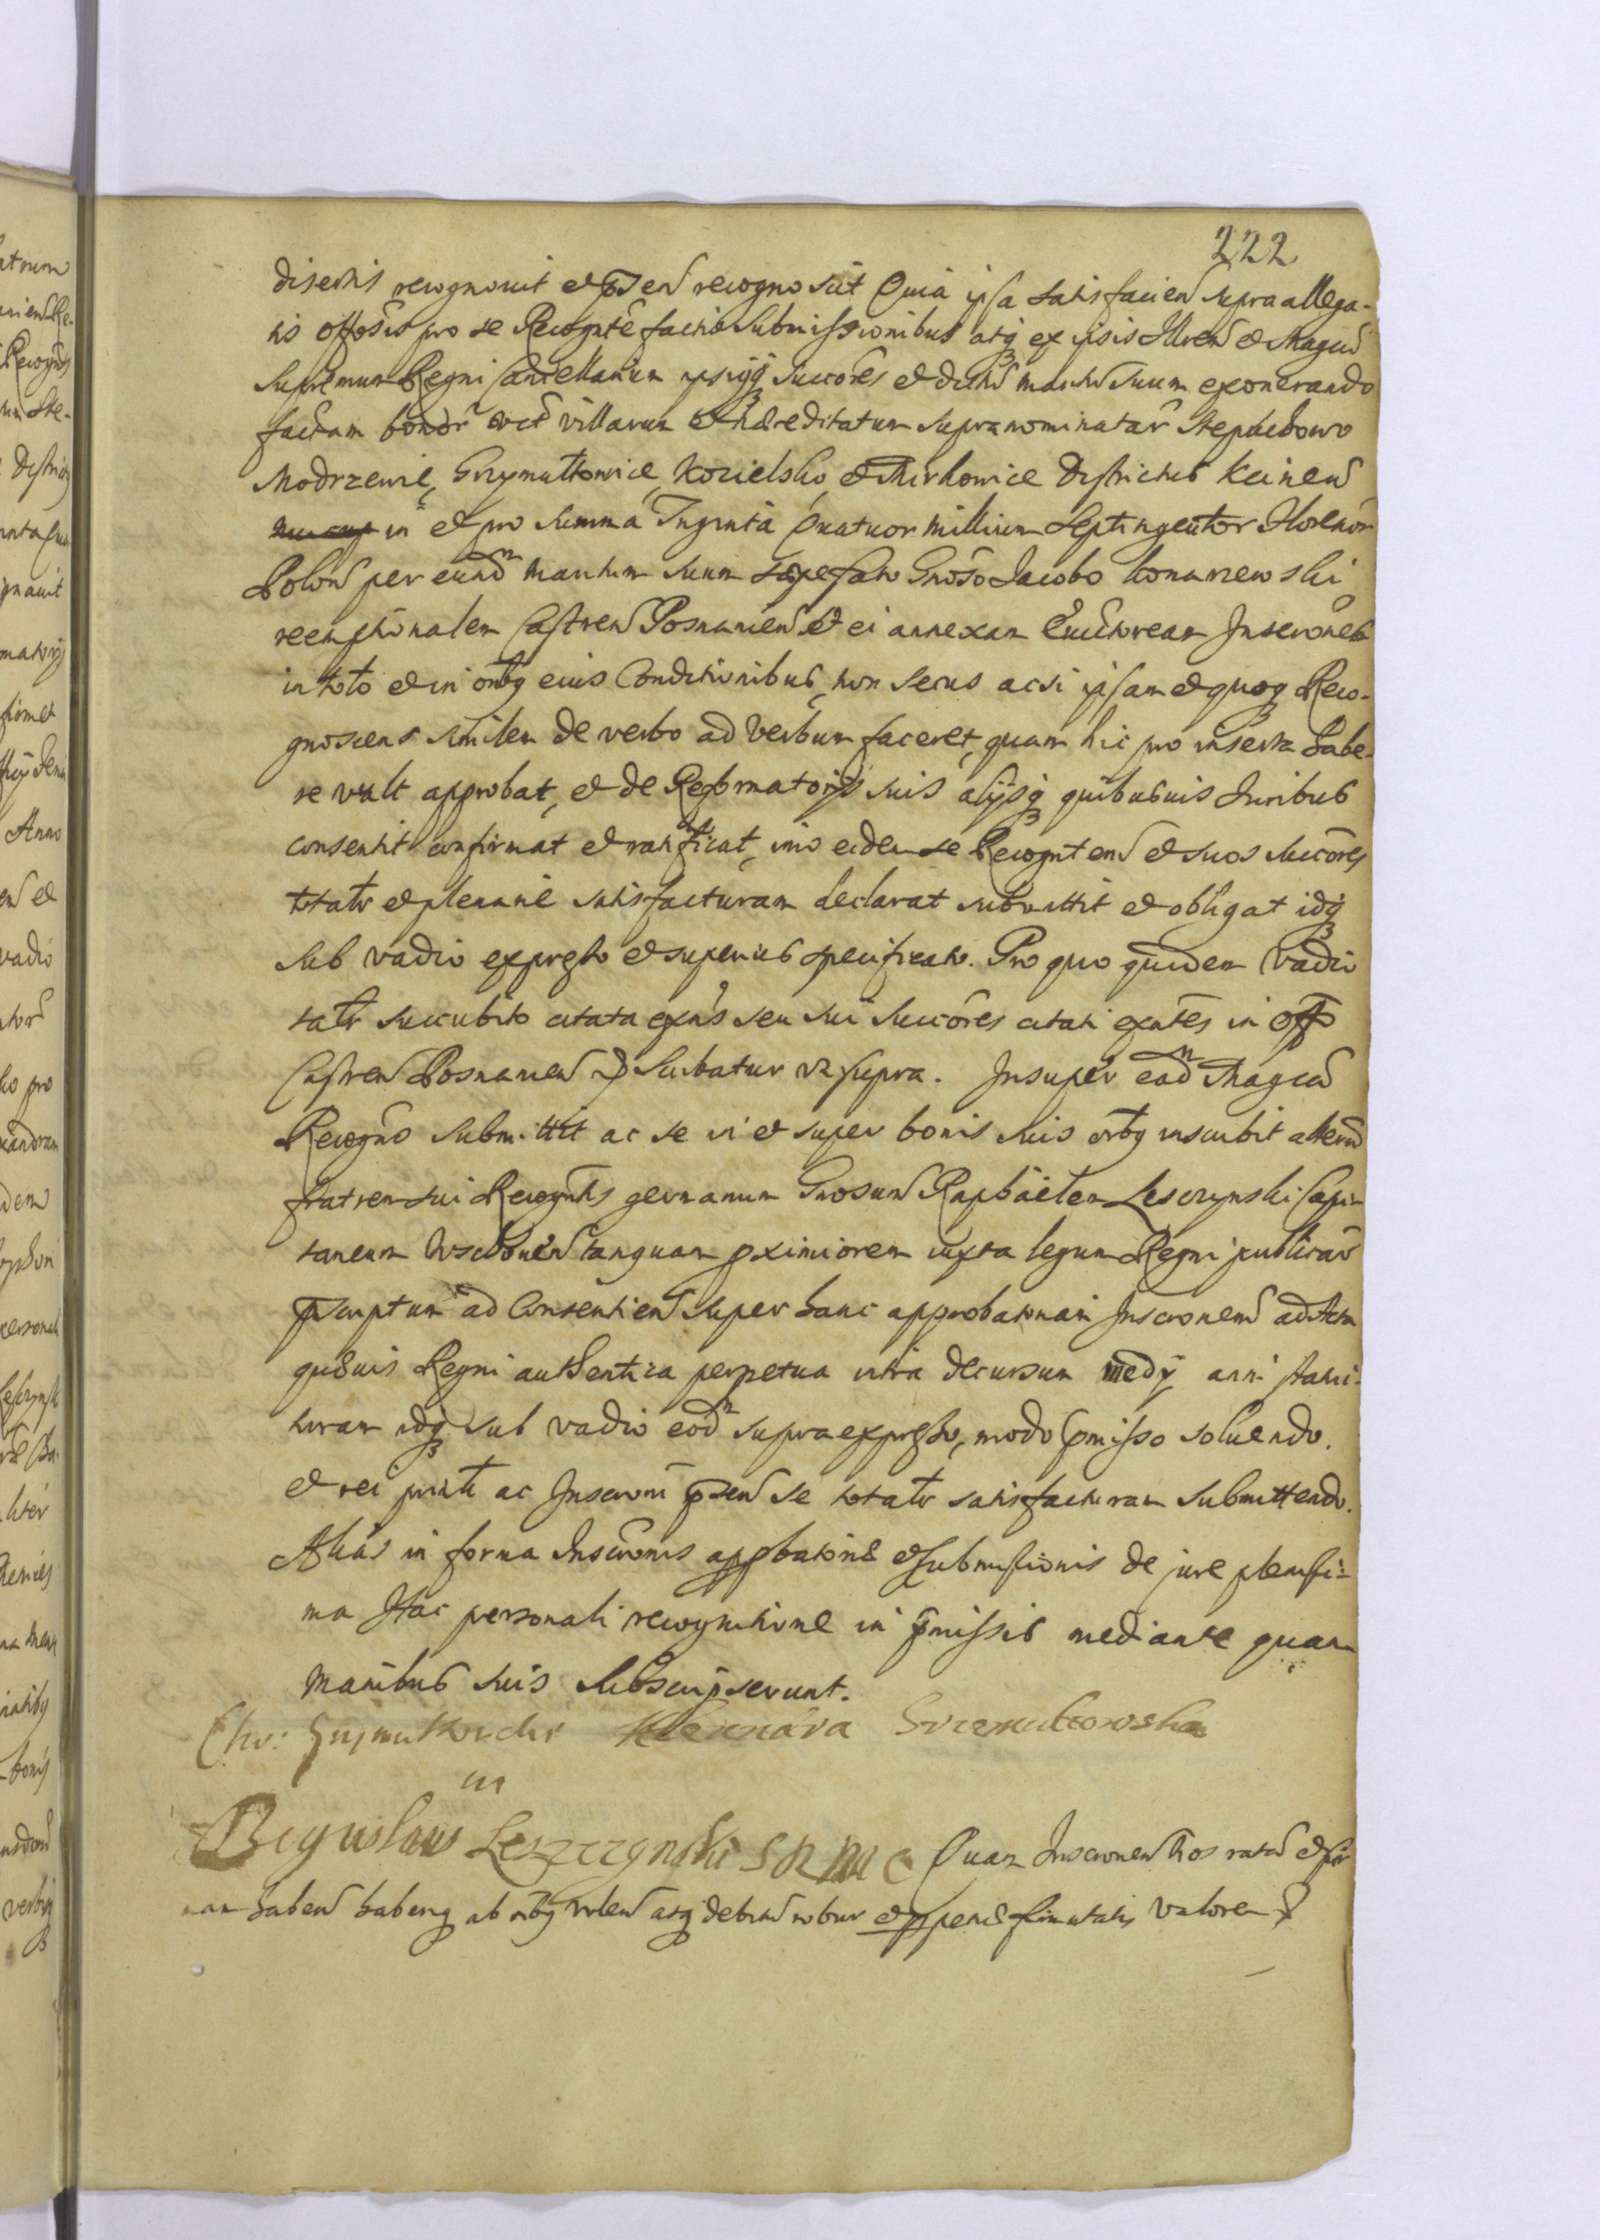 222
disertis recognovit et pñsen recognoscit Quia ipsa satisfacien supraallega-
tis pro se Recognte factis Submissionibus atq ex ipsis Illren et Magcum
Supremum Regni Cancellarium ipsiusq succores et dictum maritum suum exonerando
factam bonor villarum et hæreditatum supranominatar Stepuchowo
Modrzewie, Grzymułtowice, Kozielsko, et Mirkowice Districtus Keinen
in et pro summa Triginta Quatuor millium Septingentor Florenor
Polon per eund maritum suum sæpefato Gnoso Jacobo Konarzewski
reemptionalem Castren Posnanien et ei annexam Inscronem
in toto et in omnbq eius Conditionibus, non secus acsi ipsam et quoq Reco-
gnoscens similem de verbo ad verbum faceret, quam hic pro inserta habe-
re vult approbat, et de Reformatorijs suis alijsq quibusuis Juribus
consentit confirmat et ratificat, imo eidem se Recognten et suos succores
totalr et plenarie satisfacturam declarat submittit et obligat idq
sub vadio expresso et superius specificato. Pro quo quidem Vadio
talr succubito citata exns seu sui succores citati exntes in offo
Castren Posnanien scribatur ut supra. Insuper ead Magca
Recogns submittit ac se in et super bonis suis omnbq inscribit alterum
fratrem sui Recogntis germanum Gnosum Raphaelem Lesczynski Capi-
taneum Wschouen tanquam pximiorem iuxta legum Regni publicar
pscriptum ad Consentien super hanc approbatoriam Inscronem ad Acta
quævis Regni authentica perpetua intra decursum medij anni statui-
turam idq sub vadio eod supraexpresso, modo pmisso soluendo.
et rei juditæ ac Inscroni pñsen se totalr satisfacturam submittendo.
Alias in forma Inscronis appbatoriæ et submissionis de jure plenissi-
ma Hac personali recognitione in pmissis mediante quam
manibus suis subscripserunt.
Chr: Grzymułtowski Alexandra Grzemultowska
m
Boguslaus Leszczynski S R M C Quam Inscronem nos ratam et fir
mam haben